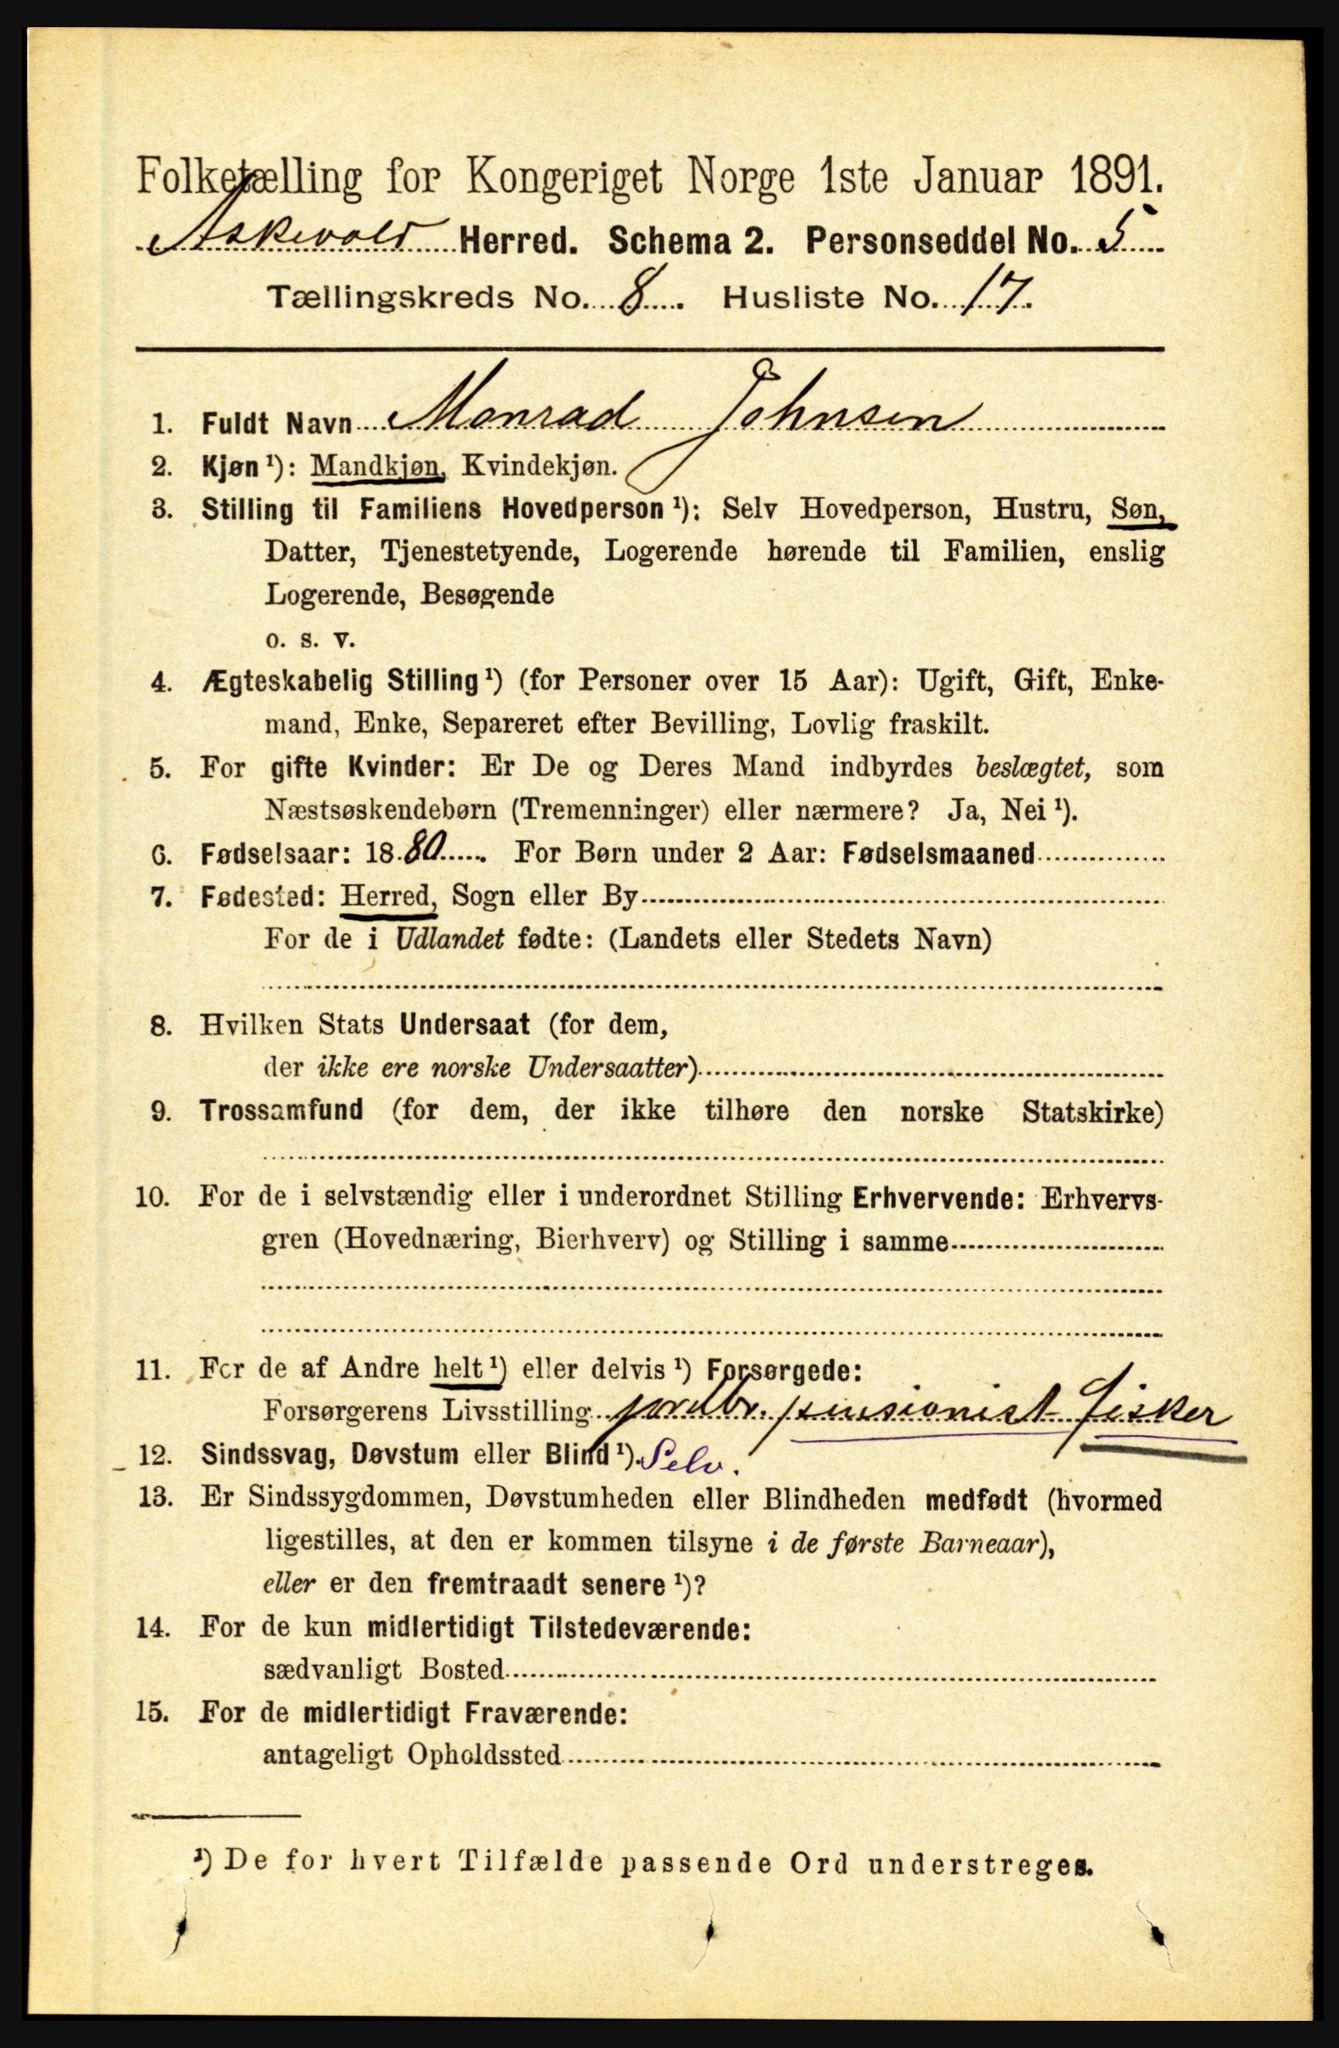 Folketælling for Kongeriget Norge 1ste Januar 1891.
Askevold Herred. Schema 2. Personseddel No. 5
Tællingskreds No. 8. Husliste No. 17.
1. Fuldt Navn Monrad Johnsen
2. Kjøn ¹): Mandkjøn, Kvindekjøn.
3. Stilling til Familiens Hovedperson ¹): Selv Hovedperson, Hustru, Søn,
Datter, Tjenestetyende, Logerende hørende til Familien, enslig
Logerende, Besøgende
o. s. v.
4. Ægteskabelig Stilling ¹) (for Personer over 15 Aar): Ugift, Gift, Enke-
mand, Enke, Separeret efter Bevilling, Lovlig fraskilt.
5. For gifte Kvinder: Er De og Deres Mand indbyrdes beslægtet, som
Næstsøskendebørn (Tremenninger) eller nærmere? Ja, Nei ¹).
6. Fødselsaar: 1880. For Børn under 2 Aar: Fødselsmaaned
7. Fødested: Herred, Sogn eller By
For de i Udlandet fødte: (Landets eller Stedets Navn)
8. Hvilken Stats Undersaat (for dem,
der ikke ere norske Undersaatter)
9. Trossamfund (for dem, der ikke tilhøre den norske Statskirke)
10. For de i selvstændig eller i underordnet Stilling Erhvervende: Erhvervs-
gren (Hovednæring, Bierhverv) og Stilling i samme
11. For de af Andre helt ¹) eller delvis ¹) Forsørgede:
Forsørgerens Livsstilling jordbr. pensionist fisker
12. Sindssvag, Døvstum eller Blind ¹). Selv.
13. Er Sindssygdommen, Døvstumheden eller Blindheden medfødt (hvormed
ligestilles, at den er kommen tilsyne i de første Barneaar),
eller er den fremtraadt senere ¹)?
14. For de kun midlertidigt Tilstedeværende:
sædvanligt Bosted
15. For de midlertidigt Fraværende:
antageligt Opholdssted
¹) De for hvert Tilfælde passende Ord understreges.